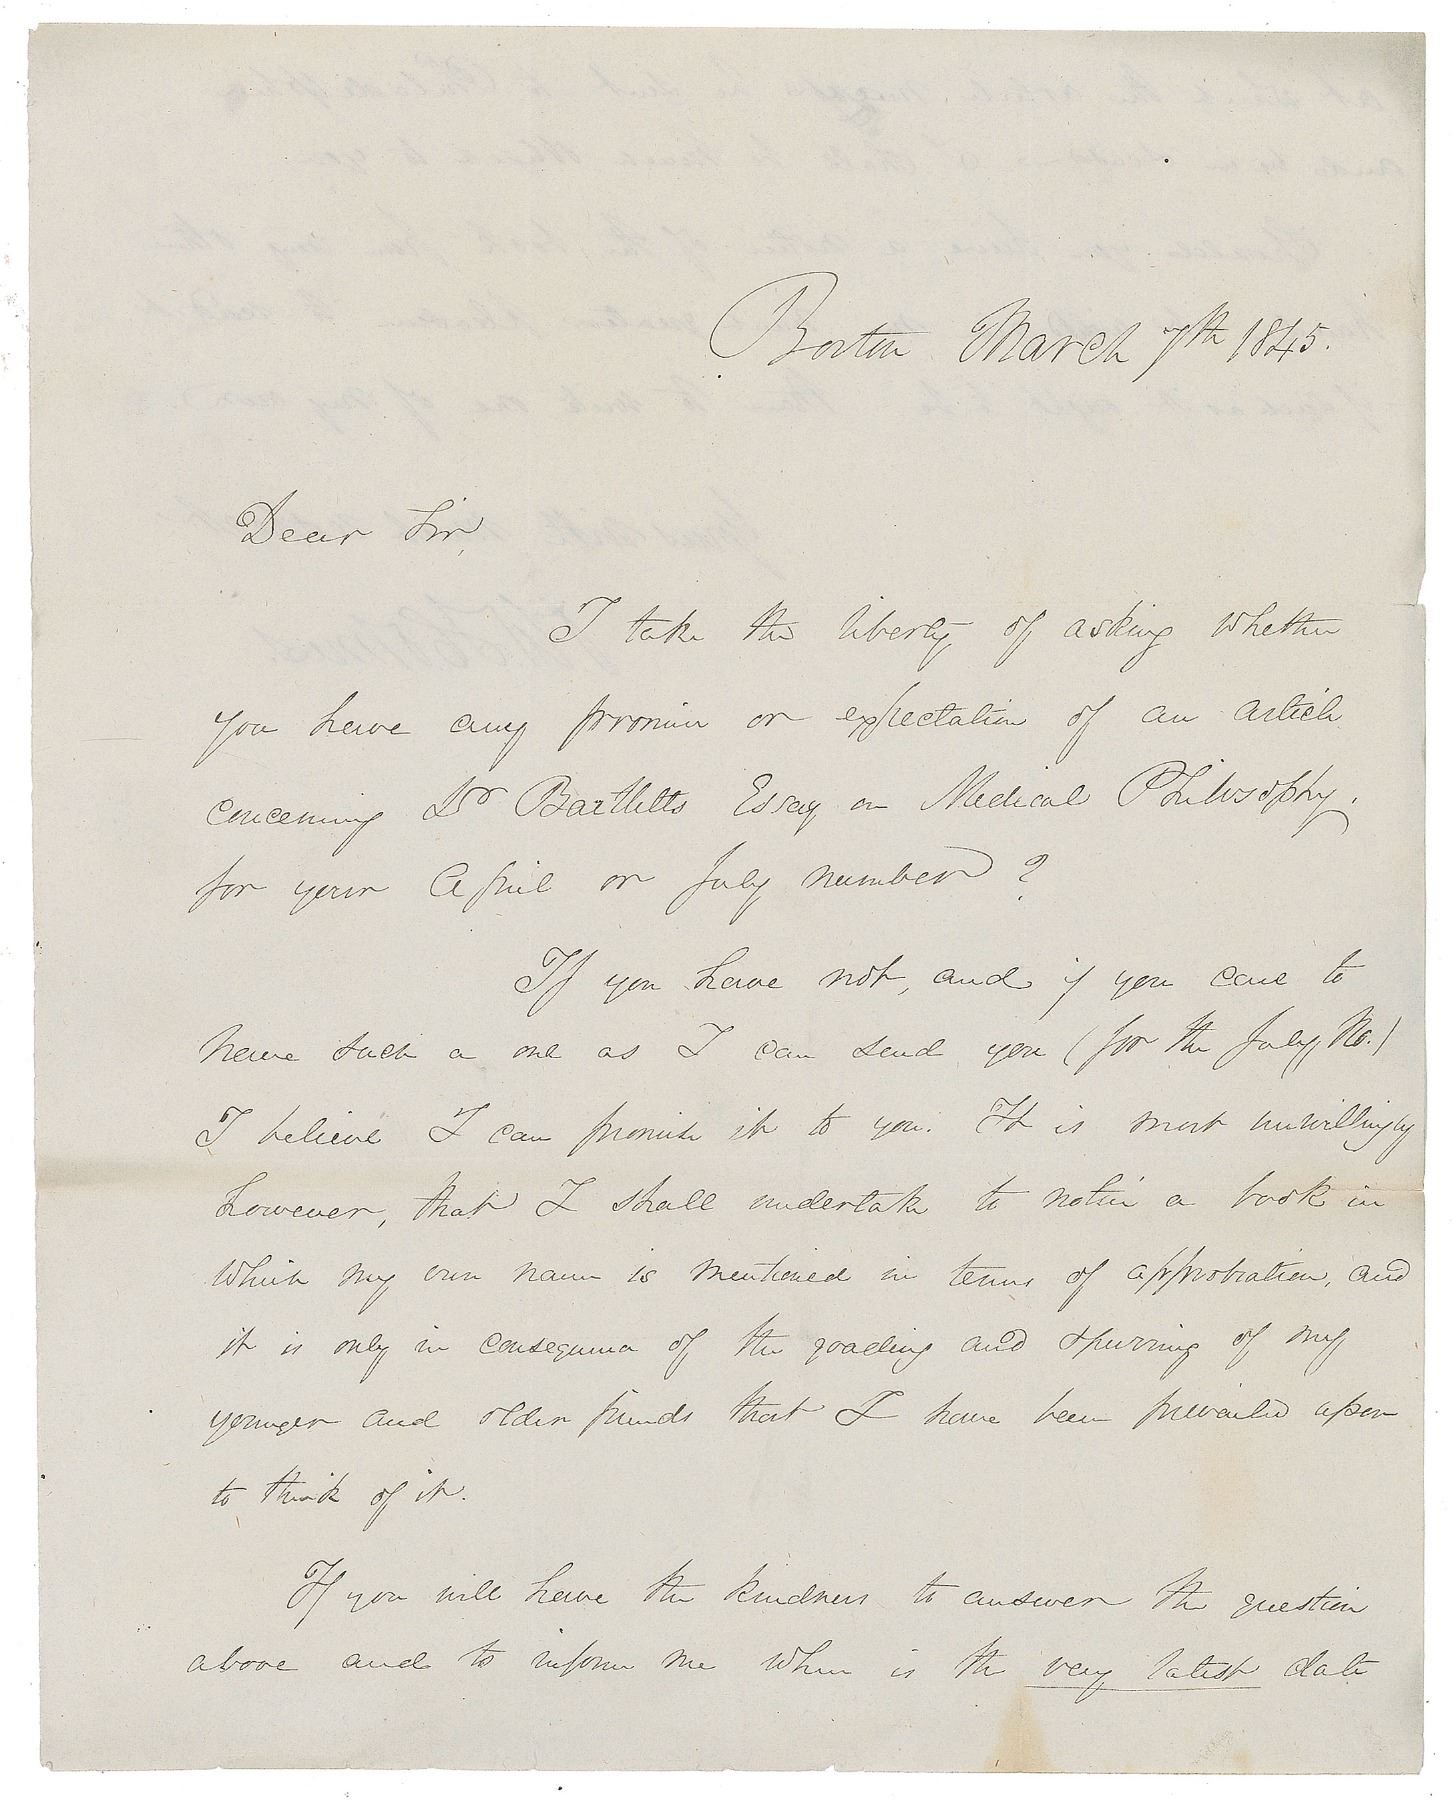 Boston March 7th 1845.
Dear Sir,
I take the liberty of asking whether
you have any promise or expectation of an article
concerning Dr Bartletts Essay on Medical Philosophy.
for your April or July number?
If you have not, and if you care to
have such a one as I can send you (for the July No.)
I believe I can promise it to you. It is most unwillingly
however, that I shall undertake to notice a book in
which my own name is mentioned in terms of approbation, and
it is only in consequence of the goading and spurring of my
younger and older friends that I have been prevailed upon
to think of it.
If you will have the kindness to answer the question
above and to inform me when is the very latest date